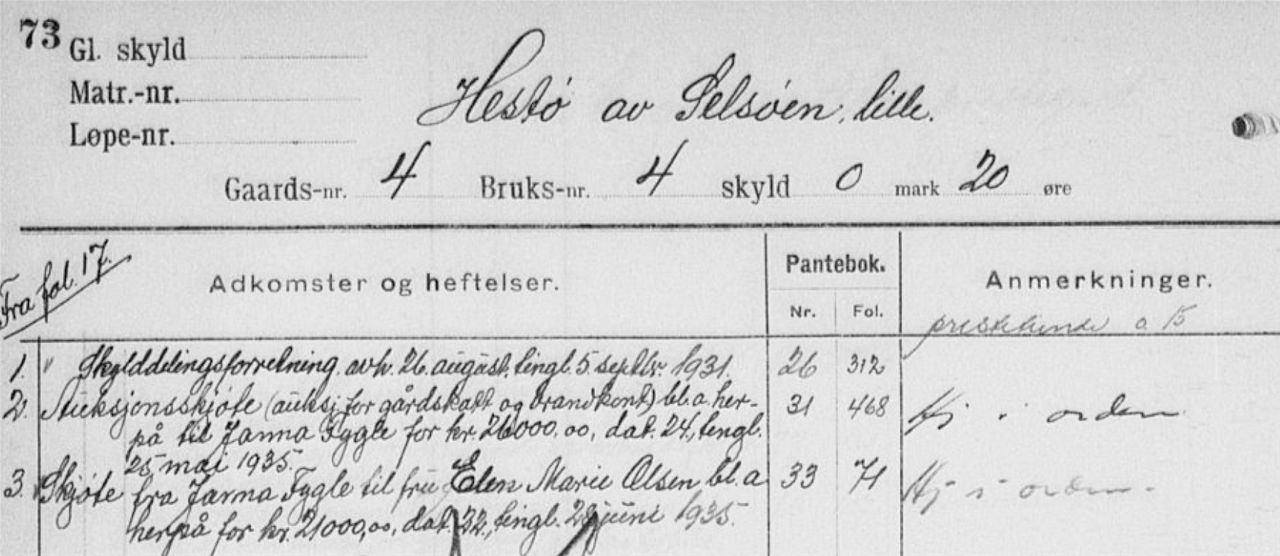 73
Gl. skyld
Matr.-nr.
Løpe-nr.
Hestø av Selsøen, lille.
Gaards-nr. 4 Bruks-nr. 4 skyld 0 mark 20 øre
Fra fol. 17.
Adkomster og heftelser. Pantebok. Anmerkninger.
Nr. Fol.
1. " Skylddelingsforretning avh. 26. august, tingl. 5 septbr. 1931. 26 312
2. Auksjonsskjøte (auksj. for gårdskatt og brandkont) bl.a. her- 31 468 Hj i orden
på til Janna Tygle for kr. 26000.00, dat. 24., tingl.
25 mai 1935.
3. Skjøte fra Janna Tygle til fru Elen Marie Olsen bl. a 33 71 Hj i orden.
herpå for kr. 21000,00, dat. 22., tingl. juni 1935.